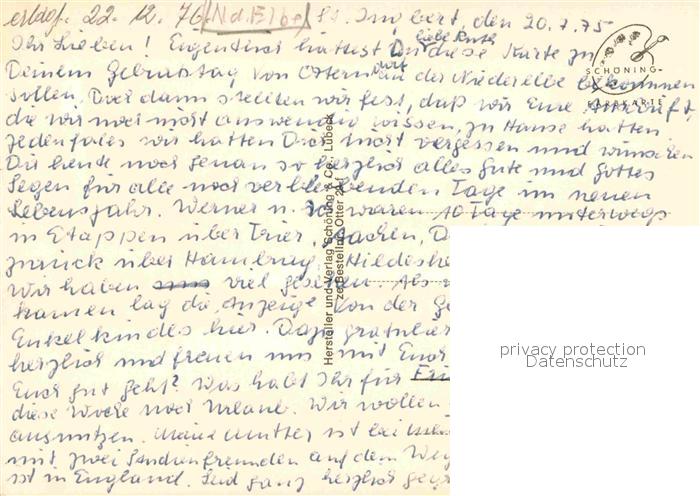 erled. 22. 12. 76 (N.d. Elbe) St. Ingbert, den 20.7.75
Ihr Lieben! Eigentlich hättest Du liebe Ruth diese Karte zu
Deinem Geburtstag von Ostern dort an der Niederelbe bekommen
sollen. Doch dann stellten wir fest, daß wir Eure Anschrift,
die wir noch nicht auswendig wissen, zu Hause hatten
jedenfalls wir hatten Dich nicht vergessen und wünschen
Dir heute noch genau so herzlich alles Gute und Gottes
Segen für alle noch verbleibenden Tage im neuen
Lebensjahr. Werner u. ich waren 10 Tage unterwegs
in Etappen über Trier, Aachen,
zurück über Hamburg, Hildeshe
Wir haben viel gesehen. Als
kamen lag die Anzeige von der Ge
Enkelkindes hier. Dazu gratulier
herzlich und freuen uns mit Euch
Euch gut geht? Was habt Ihr für
diese Woche noch Urlaub. Wir wollen
ausnutzen. Meine Mutter ist bei
mit zwei Sandkastenfreunden auf dem Weg
ist in England. Seid ganz herzlich gegr
SCHÖNING-
FARBKARTE
Hersteller und Verlag Schöning & Co., Lübeck
privacy protection
Datenschutz